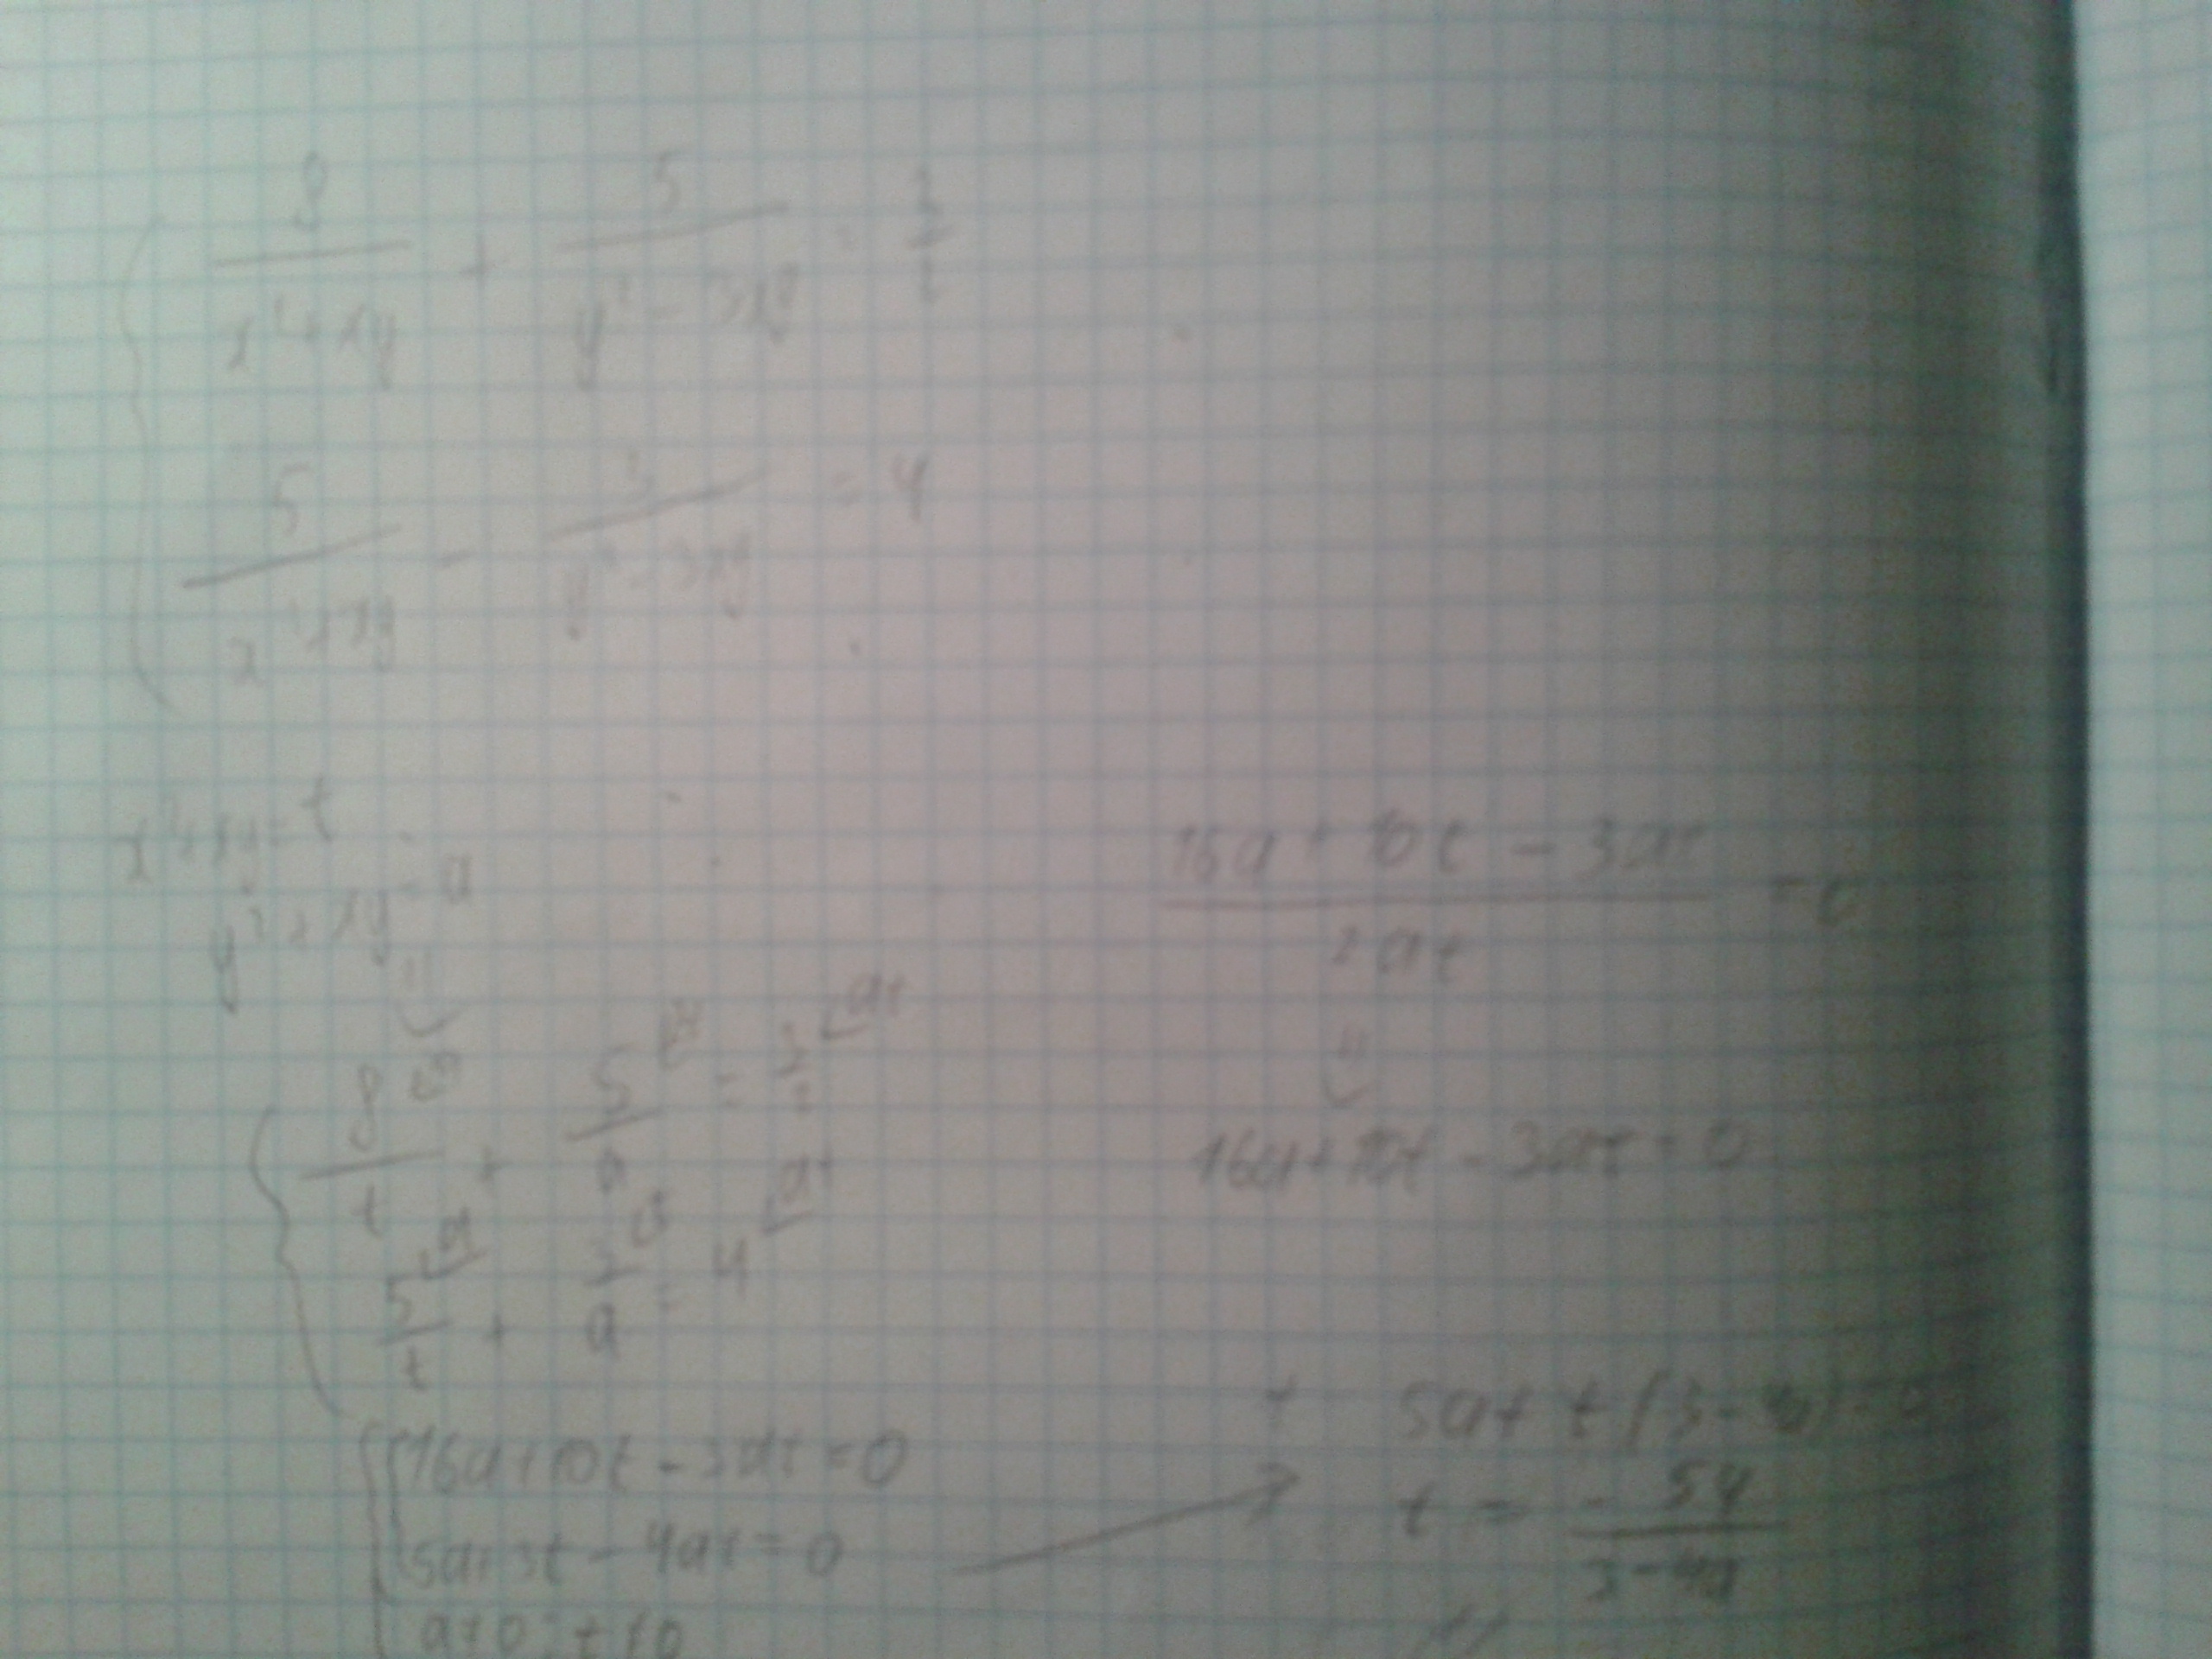 8/(x²+xy) + 5/(y²-3xy) = 3/2
5/(x²+xy) - 3/(y²-3xy) = 4
x²+xy=t
y²+xy=a
8/t + 5/a = 3/2
5/t + 3/a = 4
16a+10t-3at=0
5a+3t-4at=0
a≠0; t≠0
(16a+10t-3at)/(2at) =0
16a+10t-3at=0
5a+t(3-4a)=0
t = -5a/(3-4a)